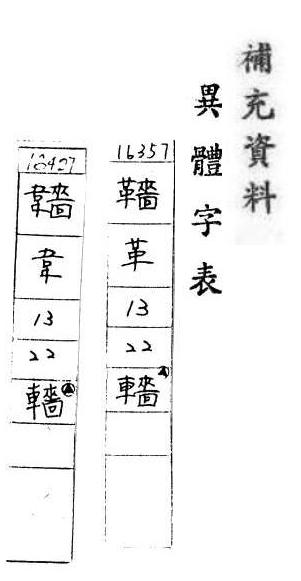 補充資料
異體字表
16357
⿰革嗇
革
13
22
轖
⿰韋嗇
韋
13
22
轖